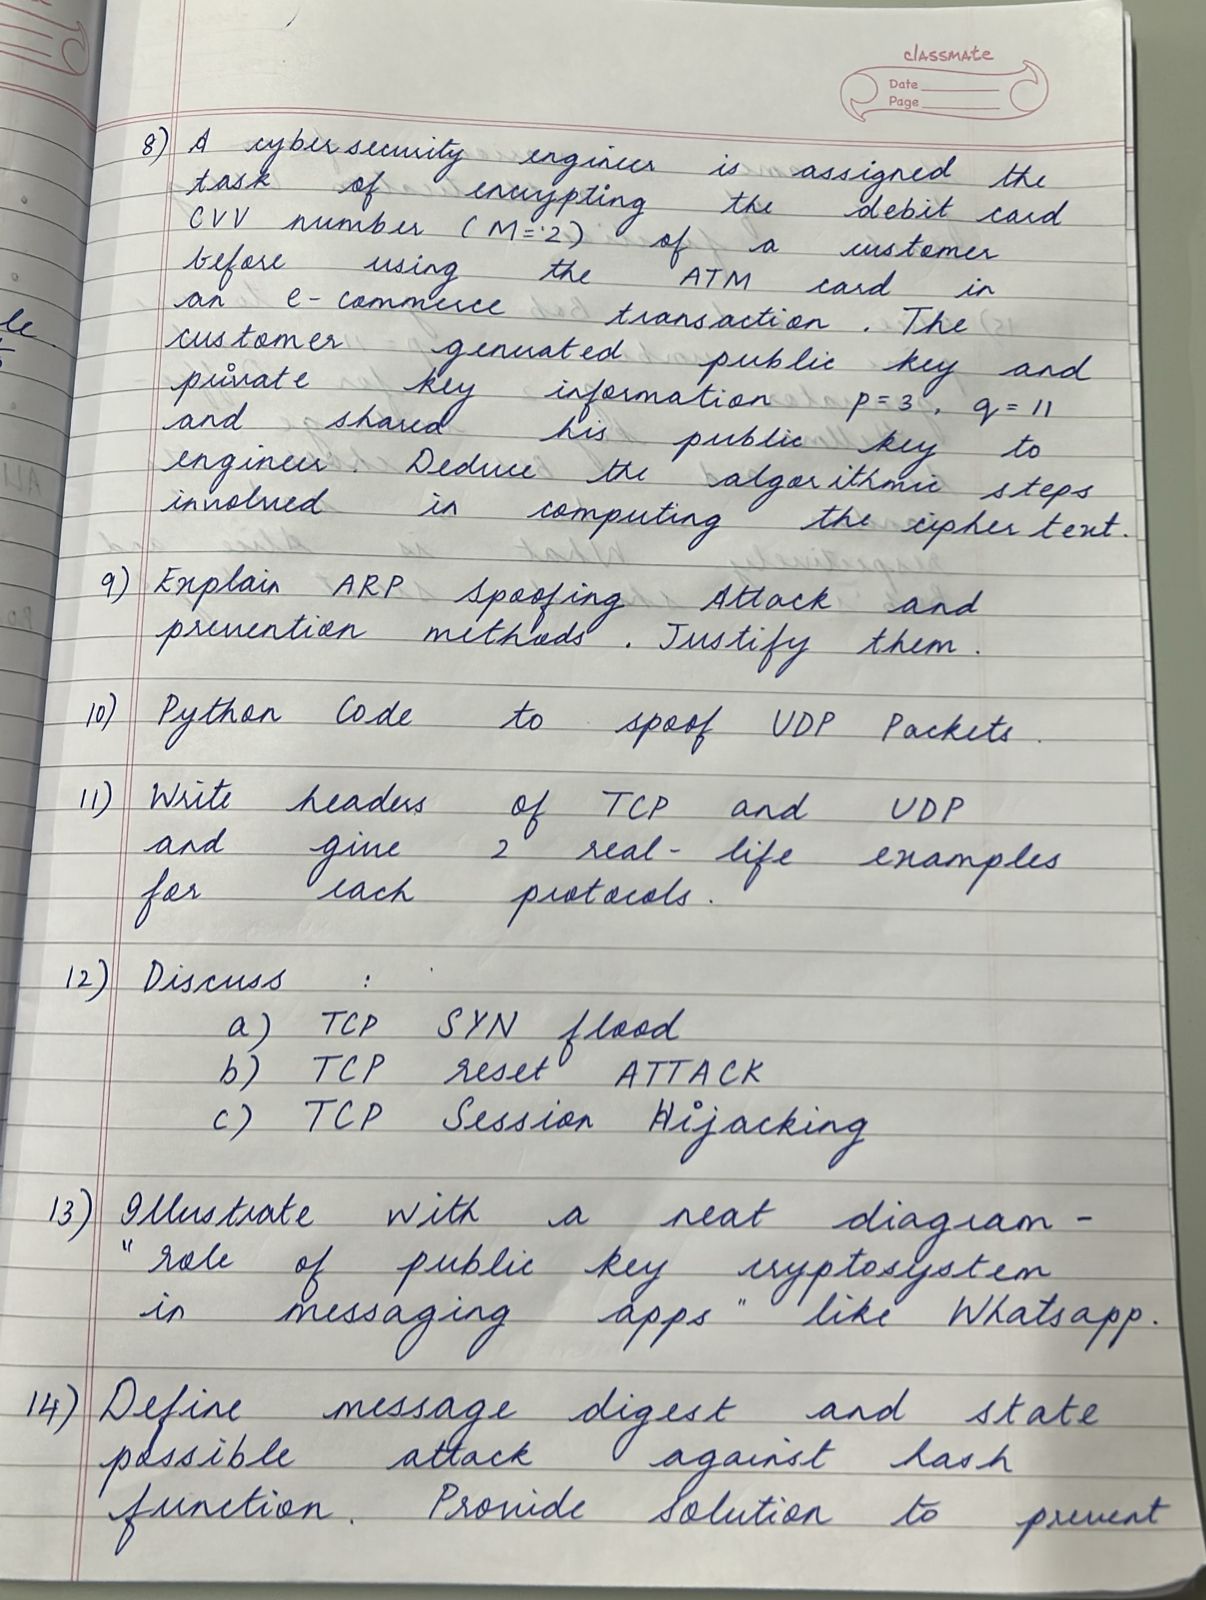 classmate
Date
Page
8) A cybersecurity engineer is assigned the
task of encrypting the debit card
CVV number (M=2) of a customer
before using the ATM card in
an e-commerce transaction. The
customer generated public key and
private key information p=3, q=11
and shared his public key to
engineer. Deduce the algorithmic steps
involved in computing the cipher text.
9) Explain ARP Spoofing Attack and
prevention methods. Justify them.
10) Python Code to spoof UDP Packets.
11) Write headers of TCP and UDP
and give 2 real-life examples
for each protocols.
12) Discuss :
a) TCP SYN flood
b) TCP reset ATTACK
c) TCP Session Hijacking
13) Illustrate with a neat diagram -
"role of public key cryptosystem
in messaging apps" like Whatsapp.
14) Define message digest and state
possible attack against hash
function. Provide solution to prevent